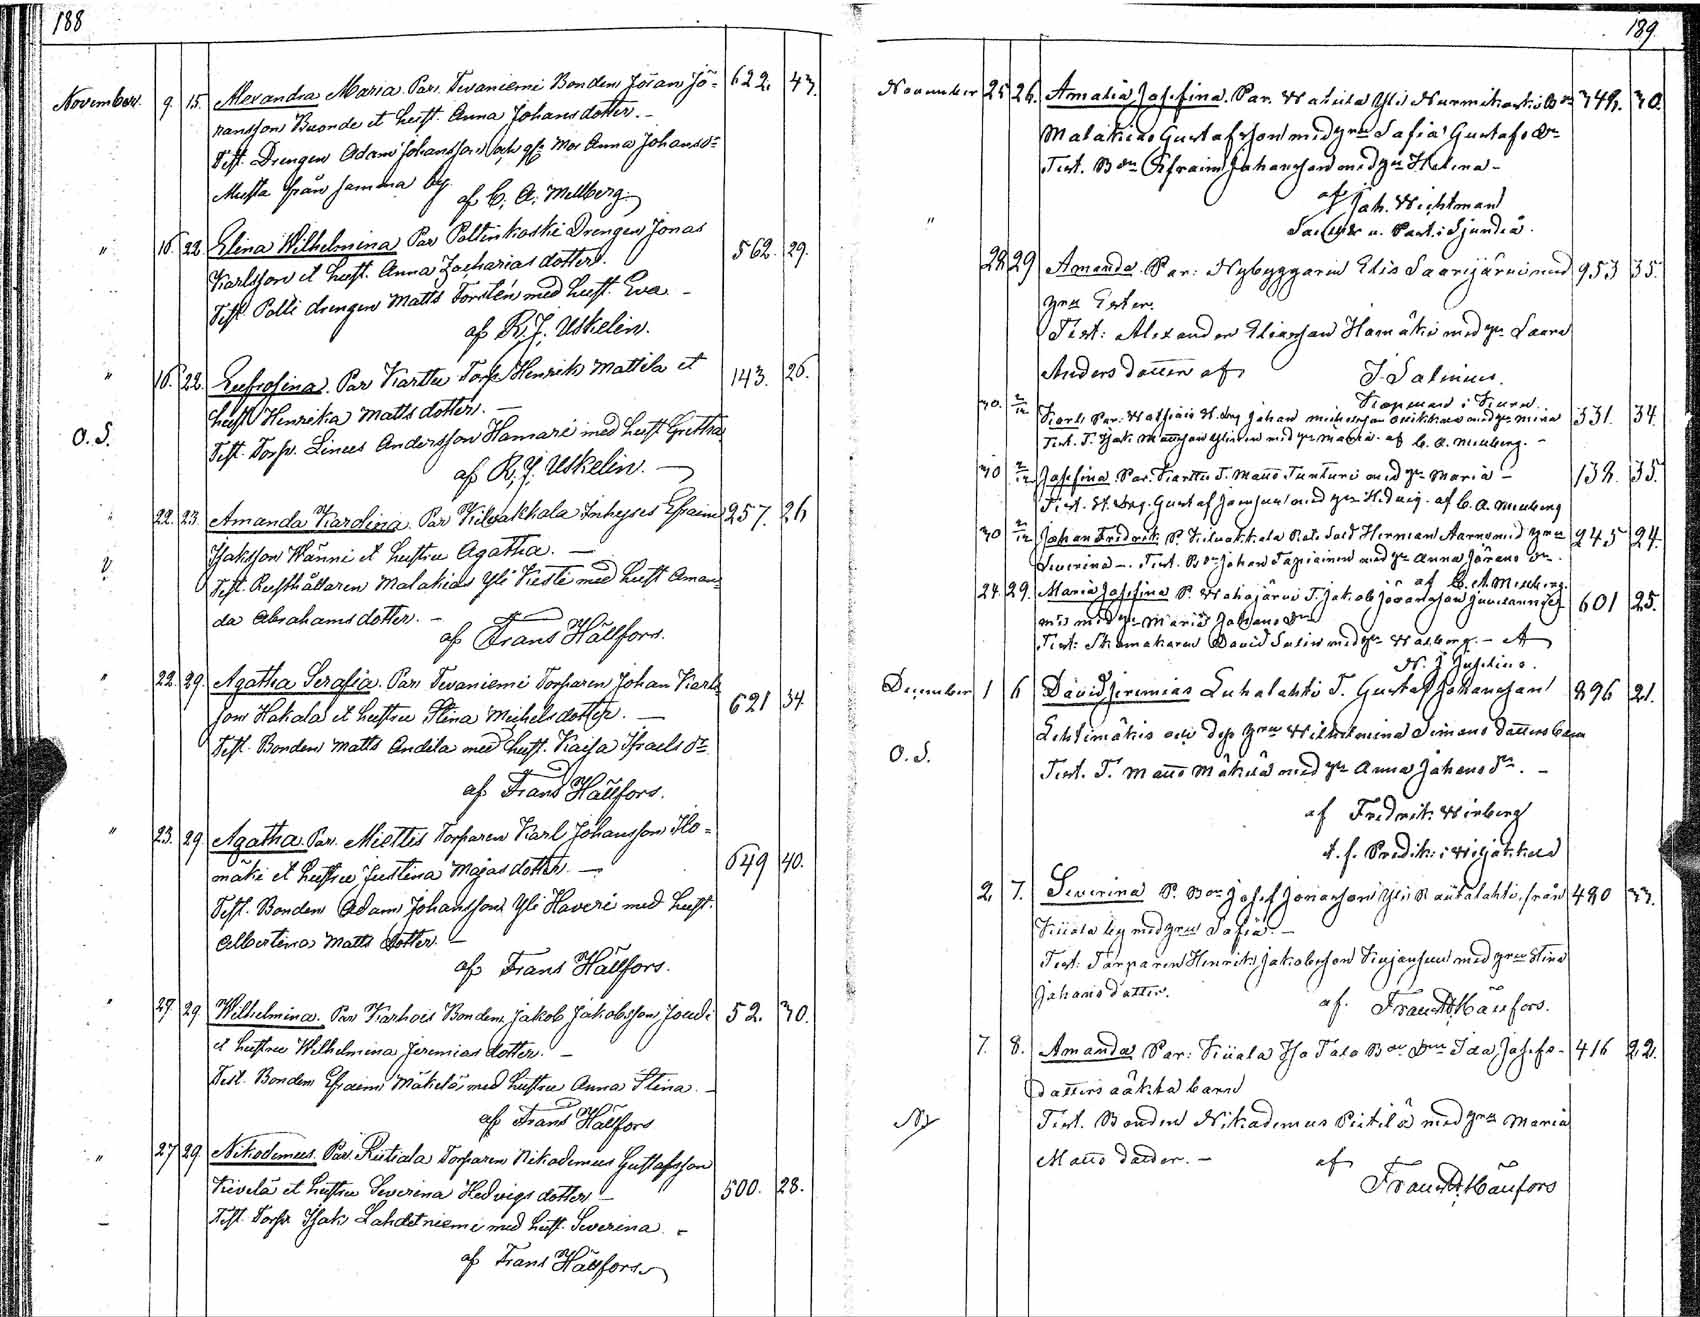 188
November. 9. 15. Alexandra Maria. Par. Tevaniemi Bonden Jöran Jö= 622. 43.
ransson Buonde et hust. Anna Johans dotter. –
Test. Drengen Adam Johansson och gft Mor Anna Johans dr
Musta från samma by.
af C. A. Mellberg.
" 16. 22. Elina Wilhelmina Par Poltinkoski Drengen Jonas 562. 29.
Karlsson et hust. Anna Zacharias dotter.
Test. Polli drengen Matts Torstén med hust. Eva –
af R. J. Uskelin.
" 16. 22. Eufrosina. Par Karttu Torp. Henrik Mattila et 143. 26.
hust Henrika Matts dotter. –
O. S.
Test. Torpr. Linus Andersson Hamari med hust Gretha
af R. J. Uskelin. –
" 22. 23. Amanda Karolina. Par Kilvakkala Inhyses Efraim 257. 26
Isaksson Wänni et hustru Agatha. –
Test. Rusthållaren Malakias Yli Kesti med hust. Aman=
da Abrahams dotter. –
af Frans Hällfors.
" 22. 29. Agatha Serafia. Par. Tevaniemi Torparen Johan Karls 621 34.
son Hakala et hustru Stina Michels dotter. –
Test. Bonden Matts Andila med hust. Kaisa Israels dr
af Frans Hällfors.
" 23. 29. Agatha. Par. Miettis Torparen Karl Johansson Ilo= 649 40.
mäki et hustru Justina Majas dotter. –
Test. Bonden Adam Johansson Yli Haveri med hust.
Albertina Matts dotter. –
af Frans Hällfors.
" 27. 29. Wilhelmina. Par Karhois Bonden Jakob Jakobsson Joudi 52. 30.
et hustru Wilhelmina Jeremias dotter. –
Test. Bonden Efraim Mäkelä med hustru Anna Stina. –
af Frans Hällfors
" 27 29. Nikodemus. Par. Riitiala Torparen Nikodemus Gustafsson 500. 28.
Kivelä et hustru Severina Hedvigs dotter –
Test. Torpr Isak Lahdetniemi med hust. Severina. –
af Frans Hällfors
189.
November 25 26. Amalia Josefina. Par. Yli Nurmikoski Bon 348. 30.
Malakias Gustafsson med hru Safia Gustafs dr
Test. Bon Efraim Johansson med hu Helena –
af Joh. Wichtman
Past. i Sjundeå.
" 28 29 Amanda. Par: Nybyggaren Elis Saarijärvi med 953 35.
hru Ester.
Test: Alexander Eliasson Hamäki med hu Saara
Anders dotter af J. Salinius.
Kapman i Kuru.
30. 2/12 Karl Par: Johan med hu Mina 331. 34.
Test. T. Isak Mattsson med hu Maria. af C. A. Mellberg. –
30 2/12 Josefina Par. Karttu T. Matts Tunturi med hu Maria – 138. 35.
Test. Gustaf med hu Hedvig. af C. A. Mellberg
30 2/12 Johan Fredrik P. Kilvakkala Herman Aarno med hru 245 24.
Severina –. Test. Bon Johan Tapiainen med hu Anna Görans dr –.
af C. A. Mellberg.
24. 29. Maria Josefina P. Wahojärvi T. Jakob 601 25.
med hu Maria Johans dr
Test: Skomakaren David Salin med hu Walborg. –
N. J. Juselius.
December 1 6 David Jeremias Luhalahti T. Gustaf Johansson 896 21.
Lehtimäkis och hru Wilhelmina Simons dotters barn
O. S.
Test. T. Matts Mäkelä med hu Anna Johans dr. –
af Fredrik Wirberg
t. f. Predik: i Wiljakkala
2. 7. Severina P. Bon Josef Jonasson Yli Rautalahti, från 480 33.
Kiiala by med hru Safia. –
Test: Torparen Henrik Jakobsson med hru Stina
Johans dotter.
af. Frans H. Hällfors.
7. 8. Amanda Par: Kiiala Iso Talo Bon dr Ida Josefs- 416 22.
dotters oäkta barn
Test. Bonden Nikodemus Pietilä med hru Maria
Matts dotter. –
af
Frans H. Hällfors